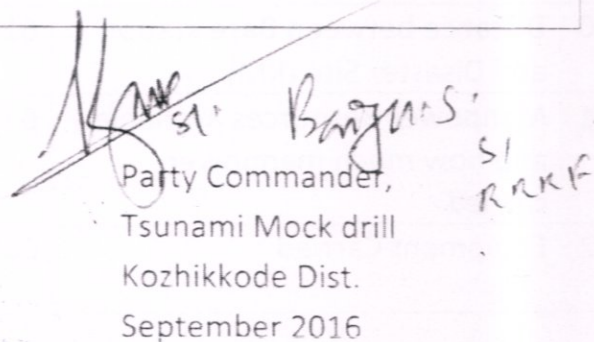 SI
SI
RRRF
Party Commander,
Tsunami Mock drill
Kozhikkode Dist.
September 2016